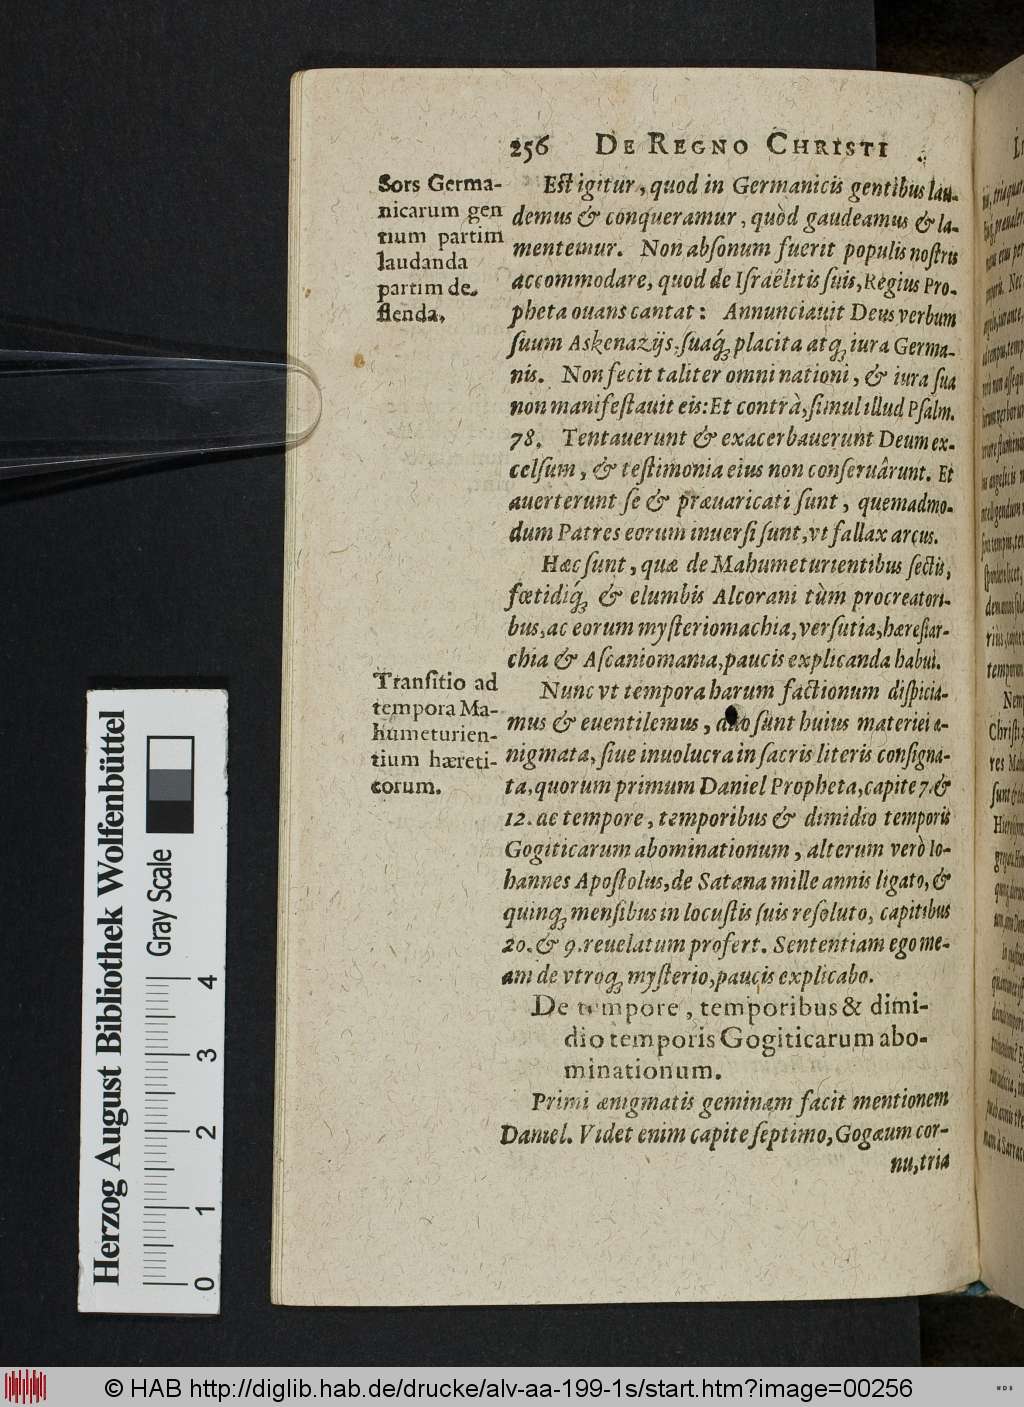 256 DE REGNO CHRISTI
Sors Germa-
nicarum gen
tium partim
laudanda
partim de-
flenda.
Est igitur, quod in Germanicis gentibus lau-
demus & conqueramur, quòd gaudeamus & la-
mentemur. Non absonum fuerit populis nostris
accommodare, quod de Israëlitis suis, Regius Pro-
pheta ouans cantat: Annunciauit Deus verbum
suum Askenazijs, suaq́; placita atq; iura Germa-
nis. Non fecit taliter omni nationi, & iura sua
non manifestauit eis: Et contrà, simul illud Psalm.
78. Tentauerunt & exacerbauerunt Deum ex-
celsum, & testimonia eius non conseruârunt. Et
auerterunt se & præuaricati sunt, quemadmo-
dum Patres eorum inuersi sunt, vt fallax arcus.
Hæc sunt, quæ de Mahumeturientibus sectis,
fœtidiq́; & elumbis Alcorani tùm procreatori-
bus, ac eorum mysteriomachia, versutia, hæresiar-
chia & Ascaniomania, paucis explicanda habui.
Transitio ad
tempora Ma-
humeturien-
tium hæreti-
corum.
Nunc vt tempora harum factionum dispicia-
mus & euentilemus, duo sunt huius materiei æ-
nigmata, siue inuolucra in sacris literis consigna-
ta, quorum primum Daniel Propheta, capite 7. &
12. ac tempore, temporibus & dimidio temporis
Gogiticarum abominationum, alterum verò Io-
hannes Apostolus, de Satana mille annis ligato, &
quinq; mensibus in locustis suis resoluto, capitibus
20. & 9. reuelatum profert. Sententiam ego me-
am de vtroq; mysterio, paucis explicabo.
De tempore, temporibus & dimi-
dio temporis Gogiticarum abo-
minationum.
Primi ænigmatis geminam facit mentionem
Daniel. Videt enim capite septimo, Gogæum cor-
nu, tria
Herzog August Bibliothek Wolfenbüttel
Gray Scale
0 1 2 3 4
© HAB http://diglib.hab.de/drucke/alv-aa-199-1s/start.htm?image=00256